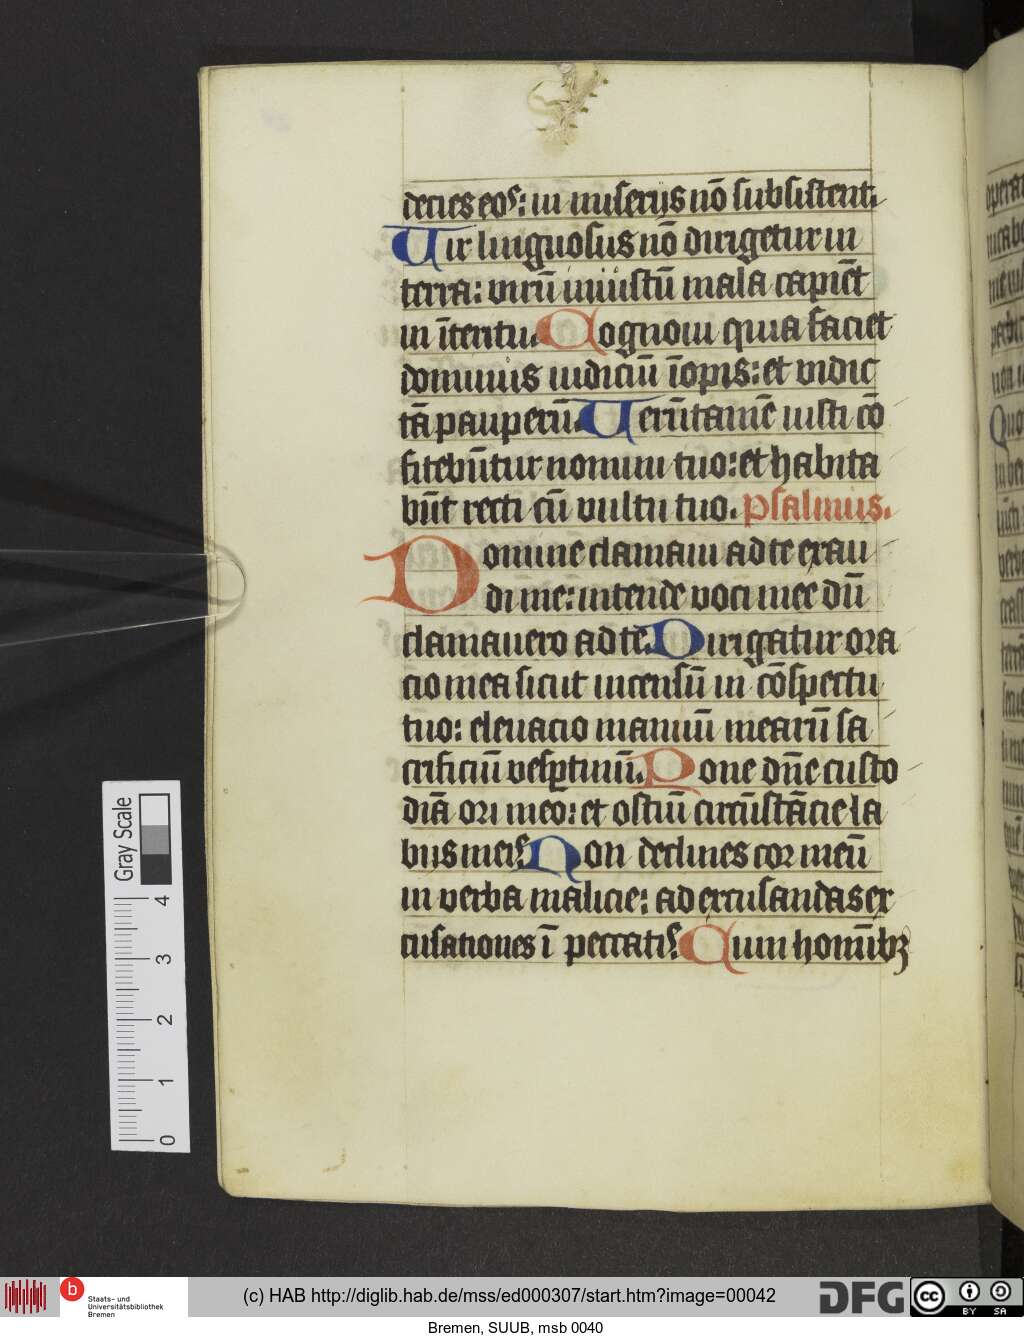 decies eos: in miserijs nō subsistent.
Uir linguosus nō dirigetur in
terra: virū iniustū mala capiēt
in īteritu. Cognoui quia faciet
dominus iudiciū īopis: et vidic
tā pauperū. Uerūtamē iusti cō
fitebūtur nomini tuo: et habita
būt recti cū vultu tuo. Psalmus.
Domine clamaui ad te exau
di me: intende voci mee dū
clamauero ad te. Dirigatur ora
cio mea sicut incensū in cōspectu
tuo: eleuacio manuū mearū sa
crificiū vesptinū. Pone dn̄e custo
diā ori meo: et ostiū circūstācie la
bijs meis. Non declines cor meū
in verba malicie: ad excusandas ex
cusationes ī peccatis. Cum homībꝫ
Gray Scale
4
3
2
1
0
b
Staats- und
Universitätsbibliothek
Bremen
(c) HAB http://diglib.hab.de/mss/ed000307/start.htm?image=00042
DFG
cc BY SA
Bremen, SUUB, msb 0040